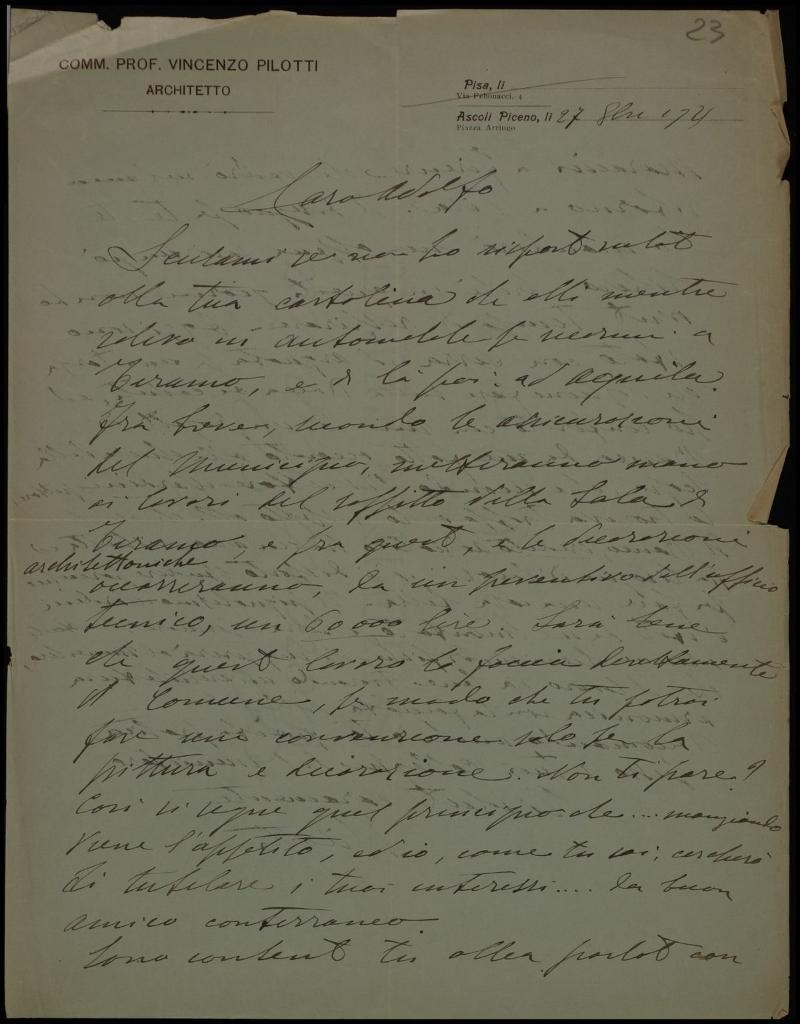 23
COMM. PROF. VINCENZO PILOTTI
ARCHITETTO
Pisa, li
Via Fibonacci, 4
Ascoli Piceno, li 27
Piazza Arringo
Caro Adolfo
Scusami se non ho risposto subito
alla tua cartolina che ebbi mentre
salivo in automobile per recarmi a
Teramo, e di là poi ad Aquila.
Fra breve, secondo le assicurazioni
del Municipio, metteranno mano
ai lavori del soffitto della Sala di
Teramo, e fra questo, e le decorazioni
architettoniche
occorreranno, da un preventivo dell'ufficio
tecnico, un 60000 lire. Sarà bene
che questo lavoro lo faccia direttamente
il Comune, per modo che tu potrai
fare una convenzione solo per la
pittura e decorazione. Non ti pare?
Così si segue quel principio che... mangiando
viene l'appetito, ed io, come tu sai, cercherò
di tutelare i tuoi interessi.... da buon
amico conterraneo.
Sono contento tu abbia parlato con